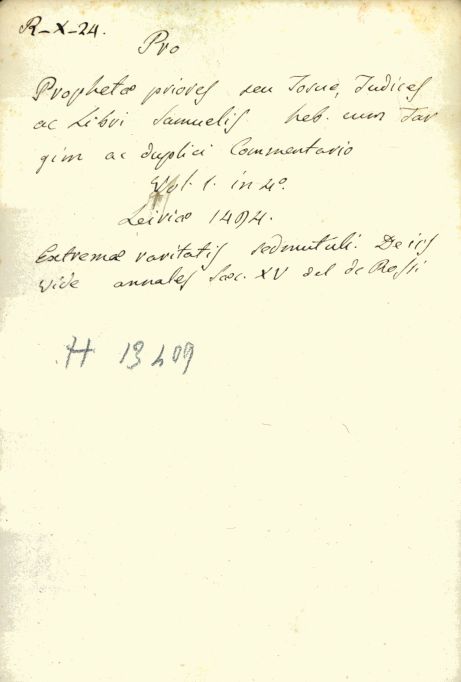 R-X-24.
Pro
Prophetæ priores seu Josue, Judices
ac Libri Samuelis heb. cum Tar
gim ac duplici Commentario
Vol. 1. in 4º.
Leiriæ 1494.
Extremæ raritatis sed mutuli. De iis
vide annales Sæc. XV del de Rossi
H 13409